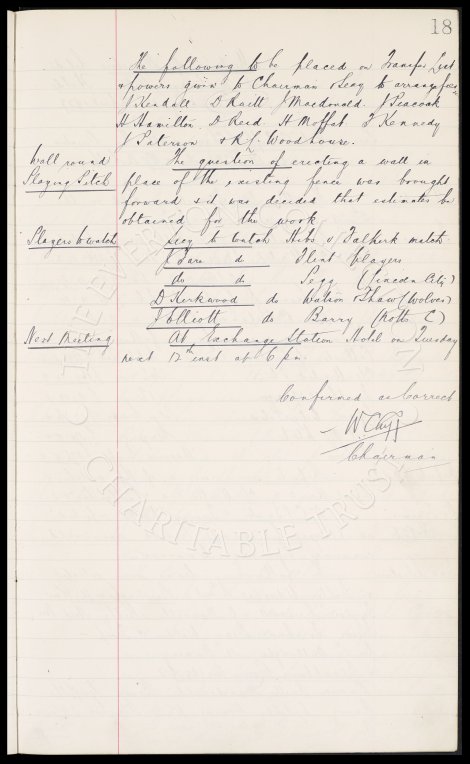 18
The following to be placed on Transfer List
& powers given to Chairman & Secy to arrange fees.
J Kendall. D Raitt J Macdonald. J Peacock
H Hamilton. D Reid H Moffat T Kennedy
J Paterson & R C. Woodhouse.
Wall round The question of erecting a wall in
Playing Pitch place of the existing fence was brought
forward & it was decided that estimates be
obtained for the work
Players to watch Secy to watch Hibs v Falkirk match
J Fare do Flint players
do do Legg (Lincoln City)
D Kirkwood do Watson & Shaw (Wolves)
J Elliott do Barry (Notts C)
Next Meeting At Exchange Station Hotel on Tuesday
next 12th inst at 6 pm.
Confirmed as Correct
W C Cuff
Chairman
CHARITABLE TRUST